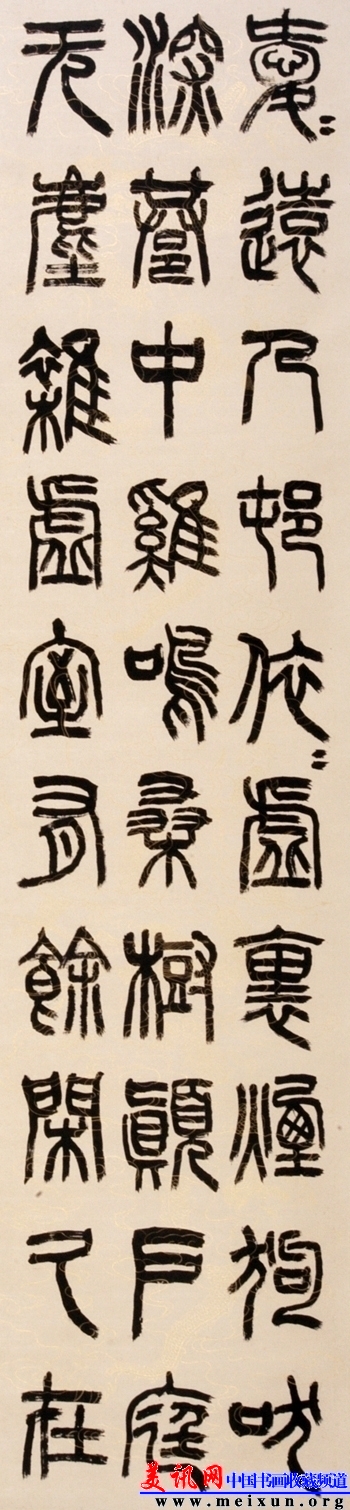 愛〻遠人邨依〻虛裏煙狗吠
深巷中雞鳴桑樹顛戶庭
无塵雜虛室有餘閑久在
美讯网 中国书画收藏频道
www.meixun.org